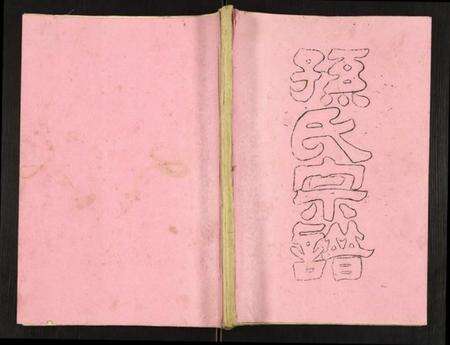 孫氏宗譜